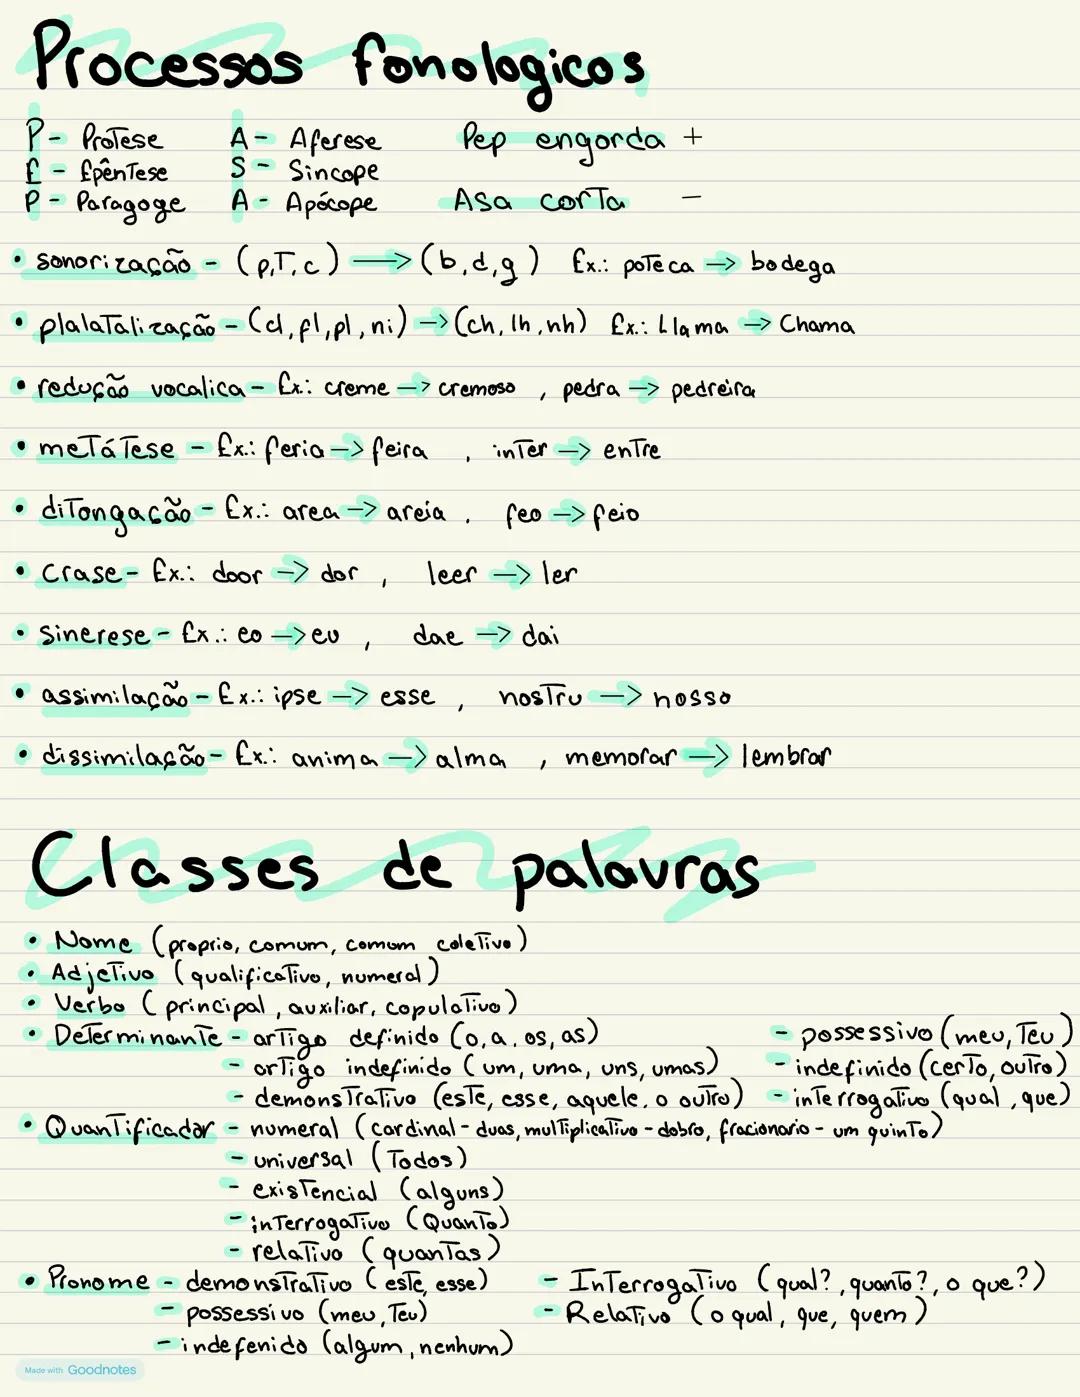 Processos fonologicos
P - Protese A - Aferese Pep engorda +
E - Epêntese S - Sincope
P - Paragoge A - Apócope Asa corta -
• sonorização - (p,t,c) → (b,d,g) Ex.: poteca → bodega
• plalatalização - (cl, fl, pl, ni) → (ch, lh, nh) Ex.: Llama → Chama
• redução vocalica - Ex.: creme → cremoso , pedra → pedreira
• metátese - Ex.: feria → feira , inter → entre
• ditongação - Ex.: area → areia , feo → feio
• Crase - Ex.: door → dor , leer → ler
• Sinerese - Ex.: eo → eu , dae → dai
• assimilação - Ex.: ipse → esse , nostru → nosso
• dissimilação - Ex.: anima → alma , memorar → lembrar
Classes de palavras
• Nome (proprio, comum, comum coletivo)
• Adjetivo (qualificativo, numeral)
• Verbo (principal, auxiliar, copulativo)
• Determinante - artigo definido (o, a, os, as) - possessivo (meu, teu)
- artigo indefinido (um, uma, uns, umas) - indefinido (certo, outro)
- demonstrativo (este, esse, aquele, o outro) - interrogativo (qual, que)
• Quantificador - numeral (cardinal - duas, multiplicativo - dobro, fracionario - um quinto)
- universal (Todos)
- existencial (alguns)
- interrogativo (Quanto)
- relativo (quantas)
• Pronome - demonstrativo (este, esse) - Interrogativo (qual?, quanto?, o que?)
- possessivo (meu, teu) - Relativo (o qual, que, quem)
- indefenido (algum, nenhum)
Made with Goodnotes